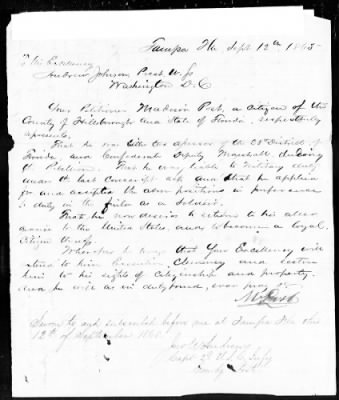 Tampa Fla Sept 12th 1865
To His Excellency
Andrew Johnson Prest U.S.
Washington D.C.
Your Petitioner Madison Post, a Citizen of the
County of Hillsborough and State of Florida, respectfully
represents,
That he was both Tax assessor of the District of
Florida and Confederate Deputy Marshall, during
the Rebellion. That he was liable to Military duty
under the last Conscript act and that he applied
for and accepted the above positions in preference
to duty in the field as a Soldier.
That he now desires to return to his allegi
ance to the United States, and to become a loyal
Citizen thereof.
Wherefore he prays that Your Excellency will
extend to him Executive Clemency and restore
him to his rights of Citizenship and property.
And he will as in duty bound, ever pray &c
M Post
Sworn to and subscribed before me at Tampa Fla this
12th of September 1865.
Capt 2d U.S.C. Infy